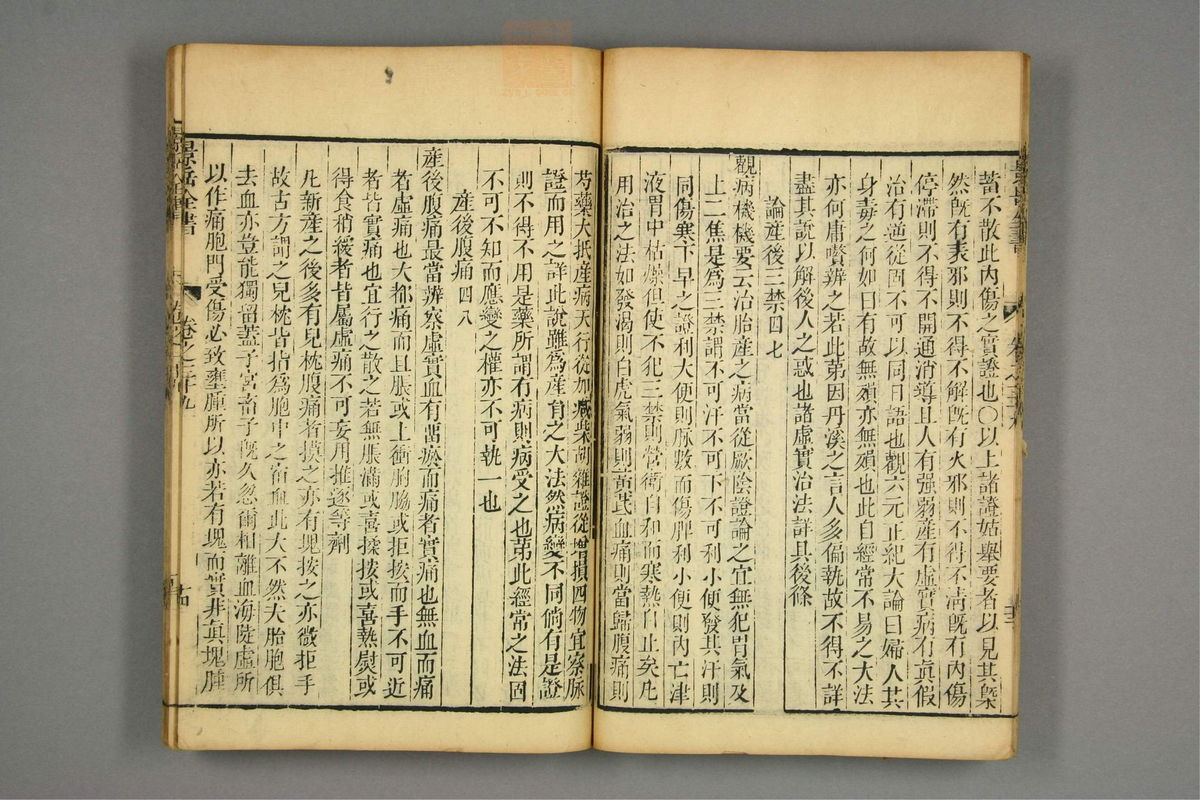 蓄不散此内傷之實證也○以上諸證姑舉要者以見其槩
然旣有表邪則不得不解旣有火邪則不得不清旣有内傷
停滯則不得不開通消導且人有强弱産有虛實病有眞假
治有逆從固不可以同日語也觀六元正紀大論曰婦人其
身毒之何如曰有故無殞亦無殞也此自經常不易之大法
亦何庸贅辨之若此第因丹溪之言人多偏執故不得不詳
盡其說以解後人之惑也諸虛實治法詳具後條
論産後三禁四七
觀病機機要云治胎産之病當從厥陰證論之宜無犯胃氣及
上二焦是爲三禁謂不可汗不可下不可利小便發其汗則
同傷寒下早之證利大便則脉數而傷脾利小便則内亡津
液胃中枯燥但使不犯三禁則營衛自和而寒熱自止矣凡
用治之法如發渴則白虎氣弱則黃芪血痛則當歸腹痛則
芍藥大抵産病天行從加減柴胡雜證從增損四物宜察脉
證而用之詳此說雖爲産育之大法然病變不同倘有是證
則不得不用是藥所謂有病則病受之也第此經常之法固
不可不知而應變之權亦不可執一也
産後腹痛四八
産後腹痛最當辨察虛實血有畱瘀而痛者實痛也無血而痛
者虛痛也大都痛而且脹或上衝胸膈或拒按而手不可近
者皆實痛也宜行之散之若無脹滿或喜揉按或喜熱熨或
得食稍緩者皆屬虛痛不可妄用推逐等劑
凡新産之後多有兒枕腹痛者摸之亦有塊按之亦微拒手
故古方謂之兒枕皆指爲胞中之宿血此大不然夫胎胞俱
去血亦豈能獨留蓋子宮蓄子旣久忽爾相離血海陡虛所
以作痛胞門受傷必致壅腫所以亦若有塊而實非眞塊腫
景岳全書
卷之三十九